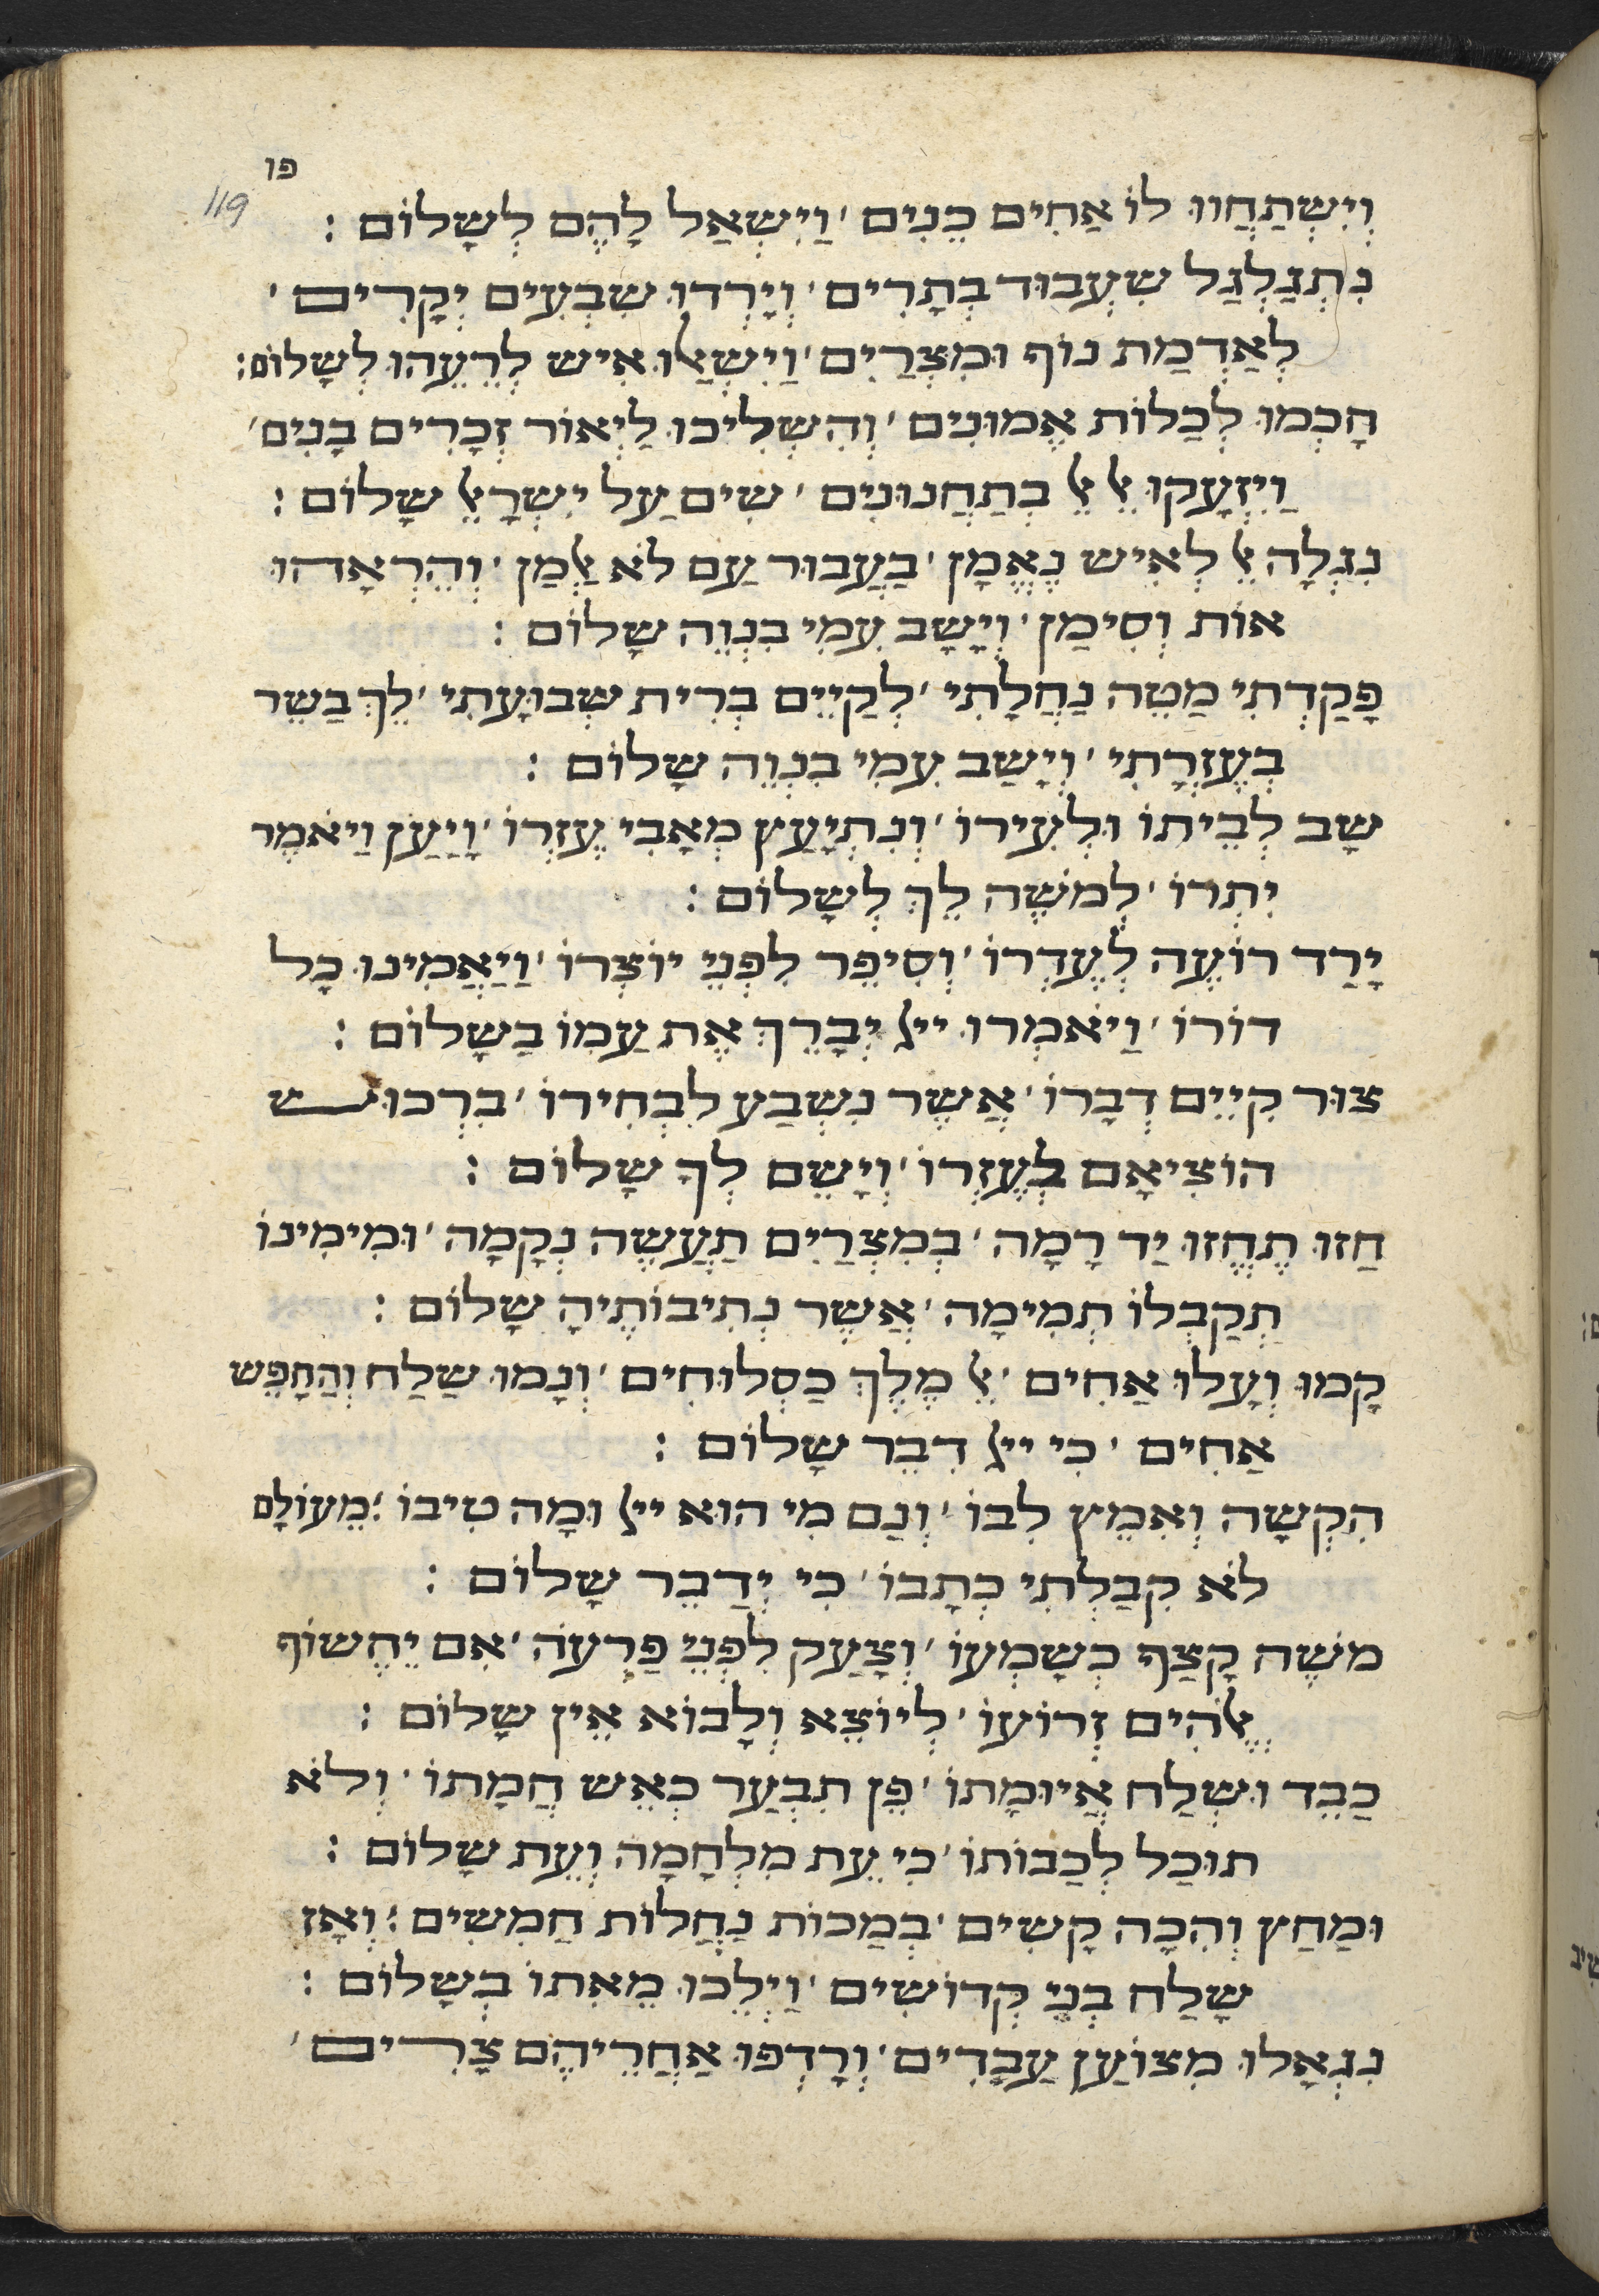 פו
119.
וְיִשְׁתַּחֲווּ לוֹ אַחִים כֵּנִים ׳ וַיִשְׁאַל לָהֶם לְשָׁלוֹם :
נִתְגַלְגַל שִעְבוּד בְתָרִים ׳ וְיָרְדוּ שִבְעִים יְקָרִים ׳
לְאַדְמַת נוֹף וּמִצְרַיִם ׳ וַיִשְׁאֲלוּ אִיש לְרֵעֵהוּ לְשָלוֹם :
חָכְמוּ לְכַלוֹת אֱמוּנִים ׳ וְהִשְלִיכוּ לַיְאוֹר זְכָרִים בָנִים ׳
וַיִזְעָקוּ אֶל אֵל בְתַחֲנוּנִים ׳ שִים עַל יִשְרָאֵל שָלוֹם :
נִגְלָה אֵל לְאִיש נֶאֱמָן ׳ בַעֲבוּר עַם לֹא אַלְמָן ׳ וְהֵרְאָהוּ
אוֹת וְסִימַן ׳ וְיָשָב עַמִי בִנְוֵה שָלוֹם :
פָקַדְתִי מַטֵה נַחֲלָתִי ׳ לְקַיֵים בְרִית שְבוּעָתִי ׳ לֵךְ בַשֵר
בְעֶזְרָתִי ׳ וְיָשַב עַמִי בִנְוֵה שָלוֹם :
שָב לְבֵיתוֹ וּלְעִירוֹ ׳ וְנִתְיָעַץ מְאָבִי עֶזְרוֹ ׳ וַיַעַן וַיֹאמֶר
יִתְרוֹ ׳ לְמֹשֶה לֵךְ לְשָלוֹם :
יָרַד רוֹעֶה לְעֶדְרוֹ ׳ וְסִיפֵר לִפְנֵי יוֹצְרוֹ ׳ וַיַאֲמִינוּ כָל
דוֹרוֹ ׳ וַיֹאמְרוּ ייי יְבָרֵךְ אֶת עַמוֹ בַשָלוֹם :
צוּר קִיֵים דְבָרוֹ ׳ אֲשֶר נִשְבַע לִבְחִירוֹ ׳ בִרְכוּש
הוֹצִיאָם בְעֶזְרוֹ ׳ וְיָשֵם לְךָ שָלוֹם :
חַזוּ תֶחֱזוּ יַד רָמָה ׳ בְמִצְרַיִם תַעֲשֶה נְקָמָה ׳ וּמִימִינוֹ
תְקַבְלוּ תְמִימָה ׳ אֲשֶר נְתִיבוֹתֶיהָ שָלוֹם :
קָמוּ וְעָלוּ אַחִים ׳ אֶל מֶלֶךְ כַסְלוּחִים ׳ וְנָמוּ שַלַח וְהַחָפֵש
אַחִים ׳ כִי ייי דִבֵר שָלוֹם :
הִקְשָה וְאִמֵץ לִבוֹ ׳ וְנָם מִי הוּא ייי וּמָה טִיבוֹ ׳ מֵעוֹלָם
לֹא קִבַלְתִי כְתָבוֹ ׳ כִי יְדַבֵר שָלוֹם :
מֹשֶה קָצַף כְשָמְעוֹ ׳ וְצָעַק לִפְנֵי פַרְעֹה ׳ אִם יַחֲשׂוֹף
אֱלֹהִים זְרוֹעוֹ ׳ לְיוֹצֵא וְלָבוֹא אֵין שָלוֹם :
כַבֵד וּשְלַח אֲיוּמָתוֹ ׳ פֶן תִבְעַר כְאֵש חֲמָתוֹ ׳ וְלֹא
תוּכַל לְכַבוֹתוֹ ׳ כִי עֵת מִלְחָמָה וְעֵת שָלוֹם :
וּמַחַץ וְהִכָה קָשִים ׳ בְמַכוֹת נַחֲלוֹת חַמִשִים ׳ וְאָז
שָלַח בְנֵי קְדוֹשִים ׳ וַיֵלְכוּ מֵאִתוֹ בְשָלוֹם :
נִגְאָלוּ מִצוֹעַן עַבָדִים ׳ וְרָדְפוּ אַחֲרֵיהֶם צָרִים ׳